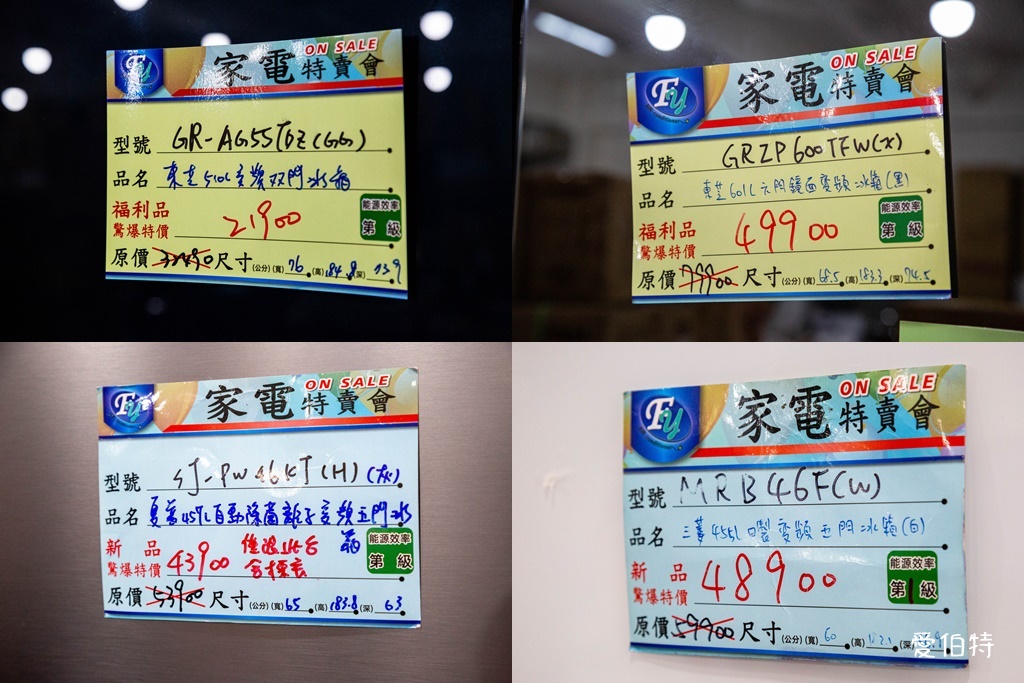 Fy 家電特賣會 ON SALE
型號 GR-AG55TDZ(GG)
品名 東芝510L變頻双門冰箱
福利品 驚爆特價 21900
能源效率 第 級
原價 尺寸(公分)(寬)76(高)184.8(深)73.9
Fy 家電特賣會 ON SALE
型號 GRZP600TFW(X)
品名 東芝601L六門鏡面變頻冰箱(黑)
福利品 驚爆特價 49900
能源效率 第 級
原價 79900 尺寸(公分)(寬)68.5(高)183.3(深)74.5
Fy 家電特賣會 ON SALE
型號 SJ-PW46KJ(H)(灰)
品名 夏普457L自動除菌離子變頻五門冰箱
新品 驚爆特價 43900 僅限此台
能源效率 第 級
原價 53900 尺寸(公分)(寬)65(高)183.8(深)63
Fy 家電特賣會 ON SALE
型號 MRB46F(W)
品名 三菱455L日製變頻五門冰箱(白)
新品 驚爆特價 48900
能源效率 第1級
原價 59900 尺寸(公分)(寬)60(高)(深)
愛伯特